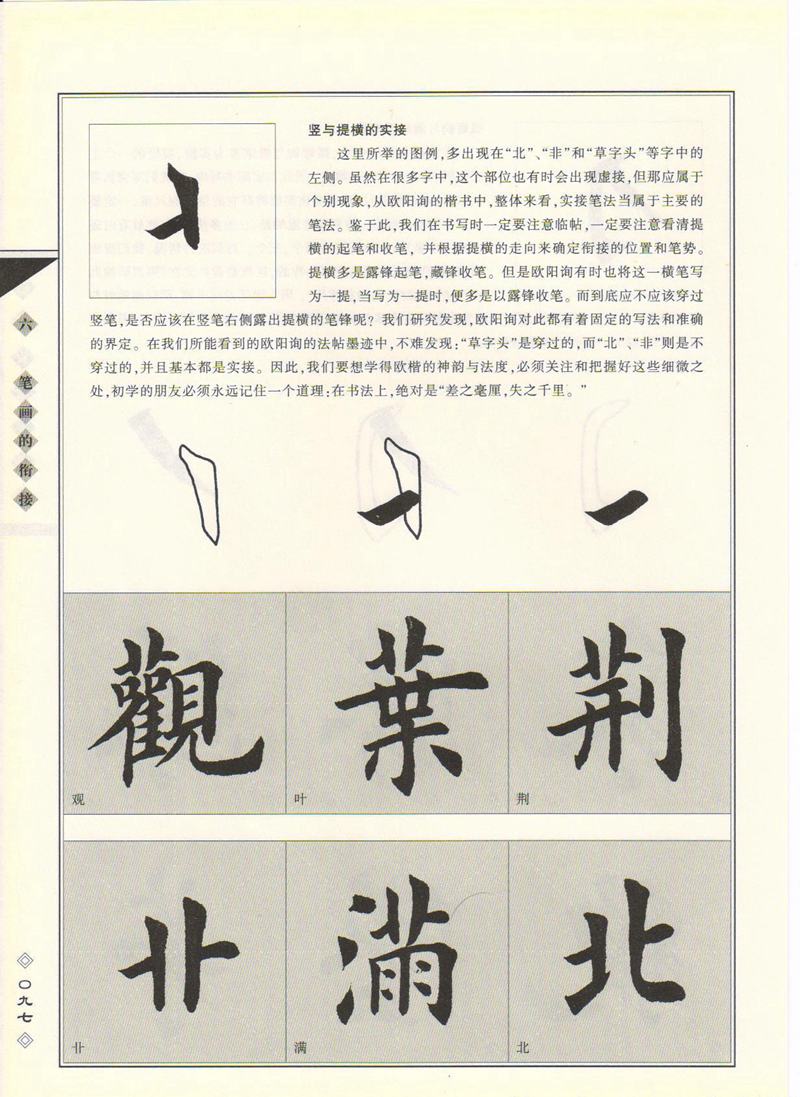 竖与提横的实接
这里所举的图例，多出现在“北”、“非”和“草字头”等字中的
左侧。虽然在很多字中，这个部位也有时会出现虚接，但那应属于
个别现象，从欧阳询的楷书中，整体来看，实接笔法当属于主要的
笔法。鉴于此，我们在书写时一定要注意临帖，一定要注意看清提
横的起笔和收笔， 并根据提横的走向来确定衔接的位置和笔势。
提横多是露锋起笔，藏锋收笔。但是欧阳询有时也将这一横笔写
为一提，当写为一提时，便多是以露锋收笔。而到底应不应该穿过
竖笔，是否应该在竖笔右侧露出提横的笔锋呢？我们研究发现，欧阳询对此都有着固定的写法和准确
的界定。在我们所能看到的欧阳询的法帖墨迹中，不难发现：“草字头”是穿过的，而“北”、“非”则是不
穿过的，并且基本都是实接。因此，我们要想学得欧楷的神韵与法度，必须关注和把握好这些细微之
处，初学的朋友必须永远记住一个道理：在书法上，绝对是“差之毫厘，失之千里。”
六 笔画的衔接
觀 葉 荆
观 叶 荆
卝 滿 北
卝 满 北
〇九七